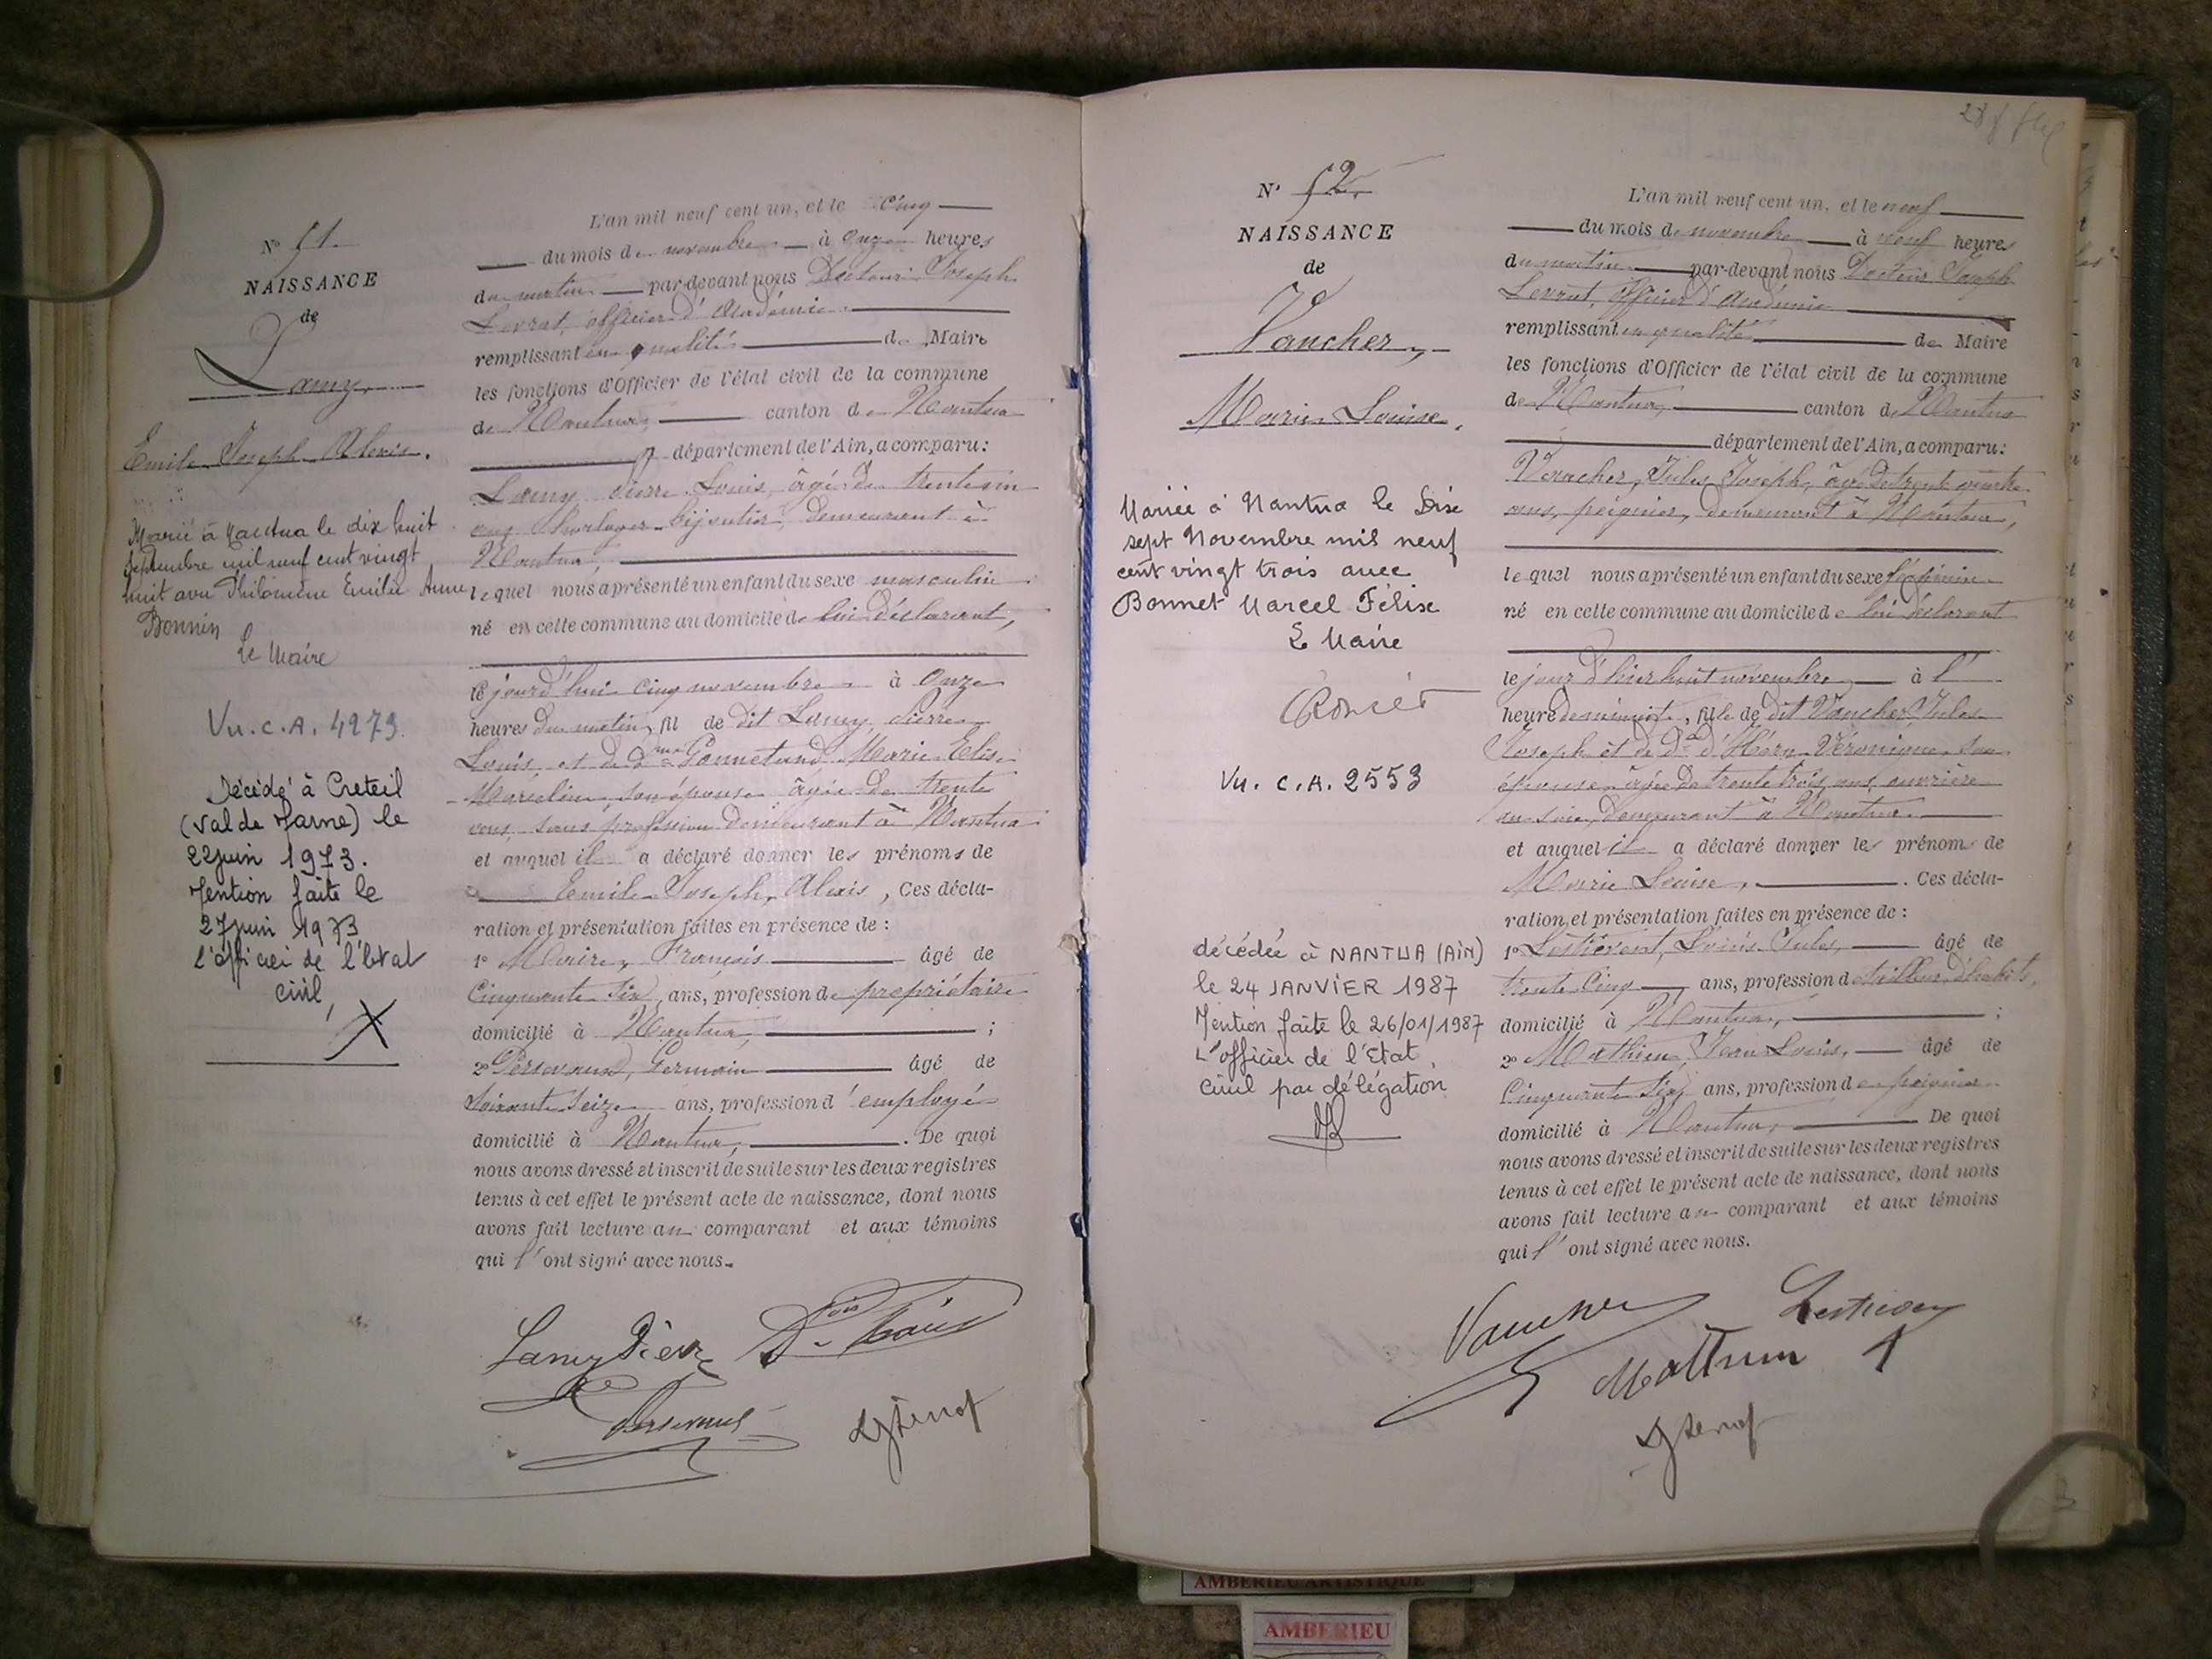 N° 51.
NAISSANCE
de
Lamy,
Emile Joseph Alexis.
Marié à Nantua le dix huit
Septembre mil neuf cent vingt
huit avec Philomène Emilie Anne
Bonnin
Le Maire
Vu. C.A. 4273.
Décédé à Creteil
(Val de Marne) le
22 juin 1973.
Mention faite le
27 juin 1973
l'officier de l'Etat
civil,
L'an mil neuf cent un, et le cinq
du mois de novembre à onze heures
du matin par-devant nous Docteur Joseph
Levrat, officier d'Académie
remplissant en qualité de Maire
les fonctions d'Officier de l'état civil de la commune
de Nantua, canton de Nantua
département de l'Ain, a comparu:
Lamy Pierre Louis, âgé de trente six
ans horloger bijoutier, demeurant à
Nantua,
lequel nous a présenté un enfant du sexe masculin
né en cette commune au domicile de lui déclarant,
le jour d'hui cinq novembre à onze
heures du matin, fil de dit Lamy Pierre
Louis et de Dme Marie Elise
Marceline son épouse âgée de trente
ans, sans profession demeurant à Nantua
et auquel il a déclaré donner les prénoms de
Emile Joseph Alexis, Ces décla-
ration et présentation faites en présence de :
1° Maire, François âgé de
Cinquante six, ans, profession de propriétaire
domicilié à Nantua, ;
2° Persevaud, Germain âgé de
Soixante seize ans, profession d'employé
domicilié à Nantua, . De quoi
nous avons dressé et inscrit de suite sur les deux registres
tenus à cet effet le présent acte de naissance, dont nous
avons fait lecture au comparant et aux témoins
qui l'ont signé avec nous.
Lamy Pierre
28
N° 52.
NAISSANCE
de
Vaucher,
Marie Louise.
Mariée à Nantua le Dix
sept Novembre mil neuf
cent vingt trois avec
Bonnet Marcel Félix
Le Maire
Vu. C.A. 2553
décédée à NANTUA (AIN)
le 24 JANVIER 1987
Mention faite le 26/01/1987
L'officier de l'Etat
civil par délégation
L'an mil neuf cent un, et le neuf
du mois de novembre à neuf heures
du matin par-devant nous Docteur Joseph
Levrat, officier d'Académie
remplissant en qualité de Maire
les fonctions d'Officier de l'état civil de la commune
de Nantua, canton de Nantua
département de l'Ain, a comparu:
Vaucher, Jules Joseph, âgé de trente quatre
ans, peignier, demeurant à Nantua,
lequel nous a présenté un enfant du sexe féminin
né en cette commune au domicile de lui déclarant
le jour d'hier huit novembre à l'
heure de minuit, fille de dit Vaucher Jules
Joseph et de De d'Héran Véronique son
épouse âgée de trente trois ans, ouvrière
en soie, demeurant à Nantua.
et auquel il a déclaré donner les prénoms de
Marie Louise, . Ces décla-
ration et présentation faites en présence de :
1° Lestiévent, Louis Jules, âgé de
trente cinq ans, profession de tailleur d'habits,
domicilié à Nantua, ;
2° Mathieu, Jean Louis, âgé de
Cinquante six ans, profession de peignier
domicilié à Nantua, De quoi
nous avons dressé et inscrit de suite sur les deux registres
tenus à cet effet le présent acte de naissance, dont nous
avons fait lecture au comparant et aux témoins
qui l'ont signé avec nous.
Vaucher
AMBERIEU ARTISTIQUE
AMBERIEU